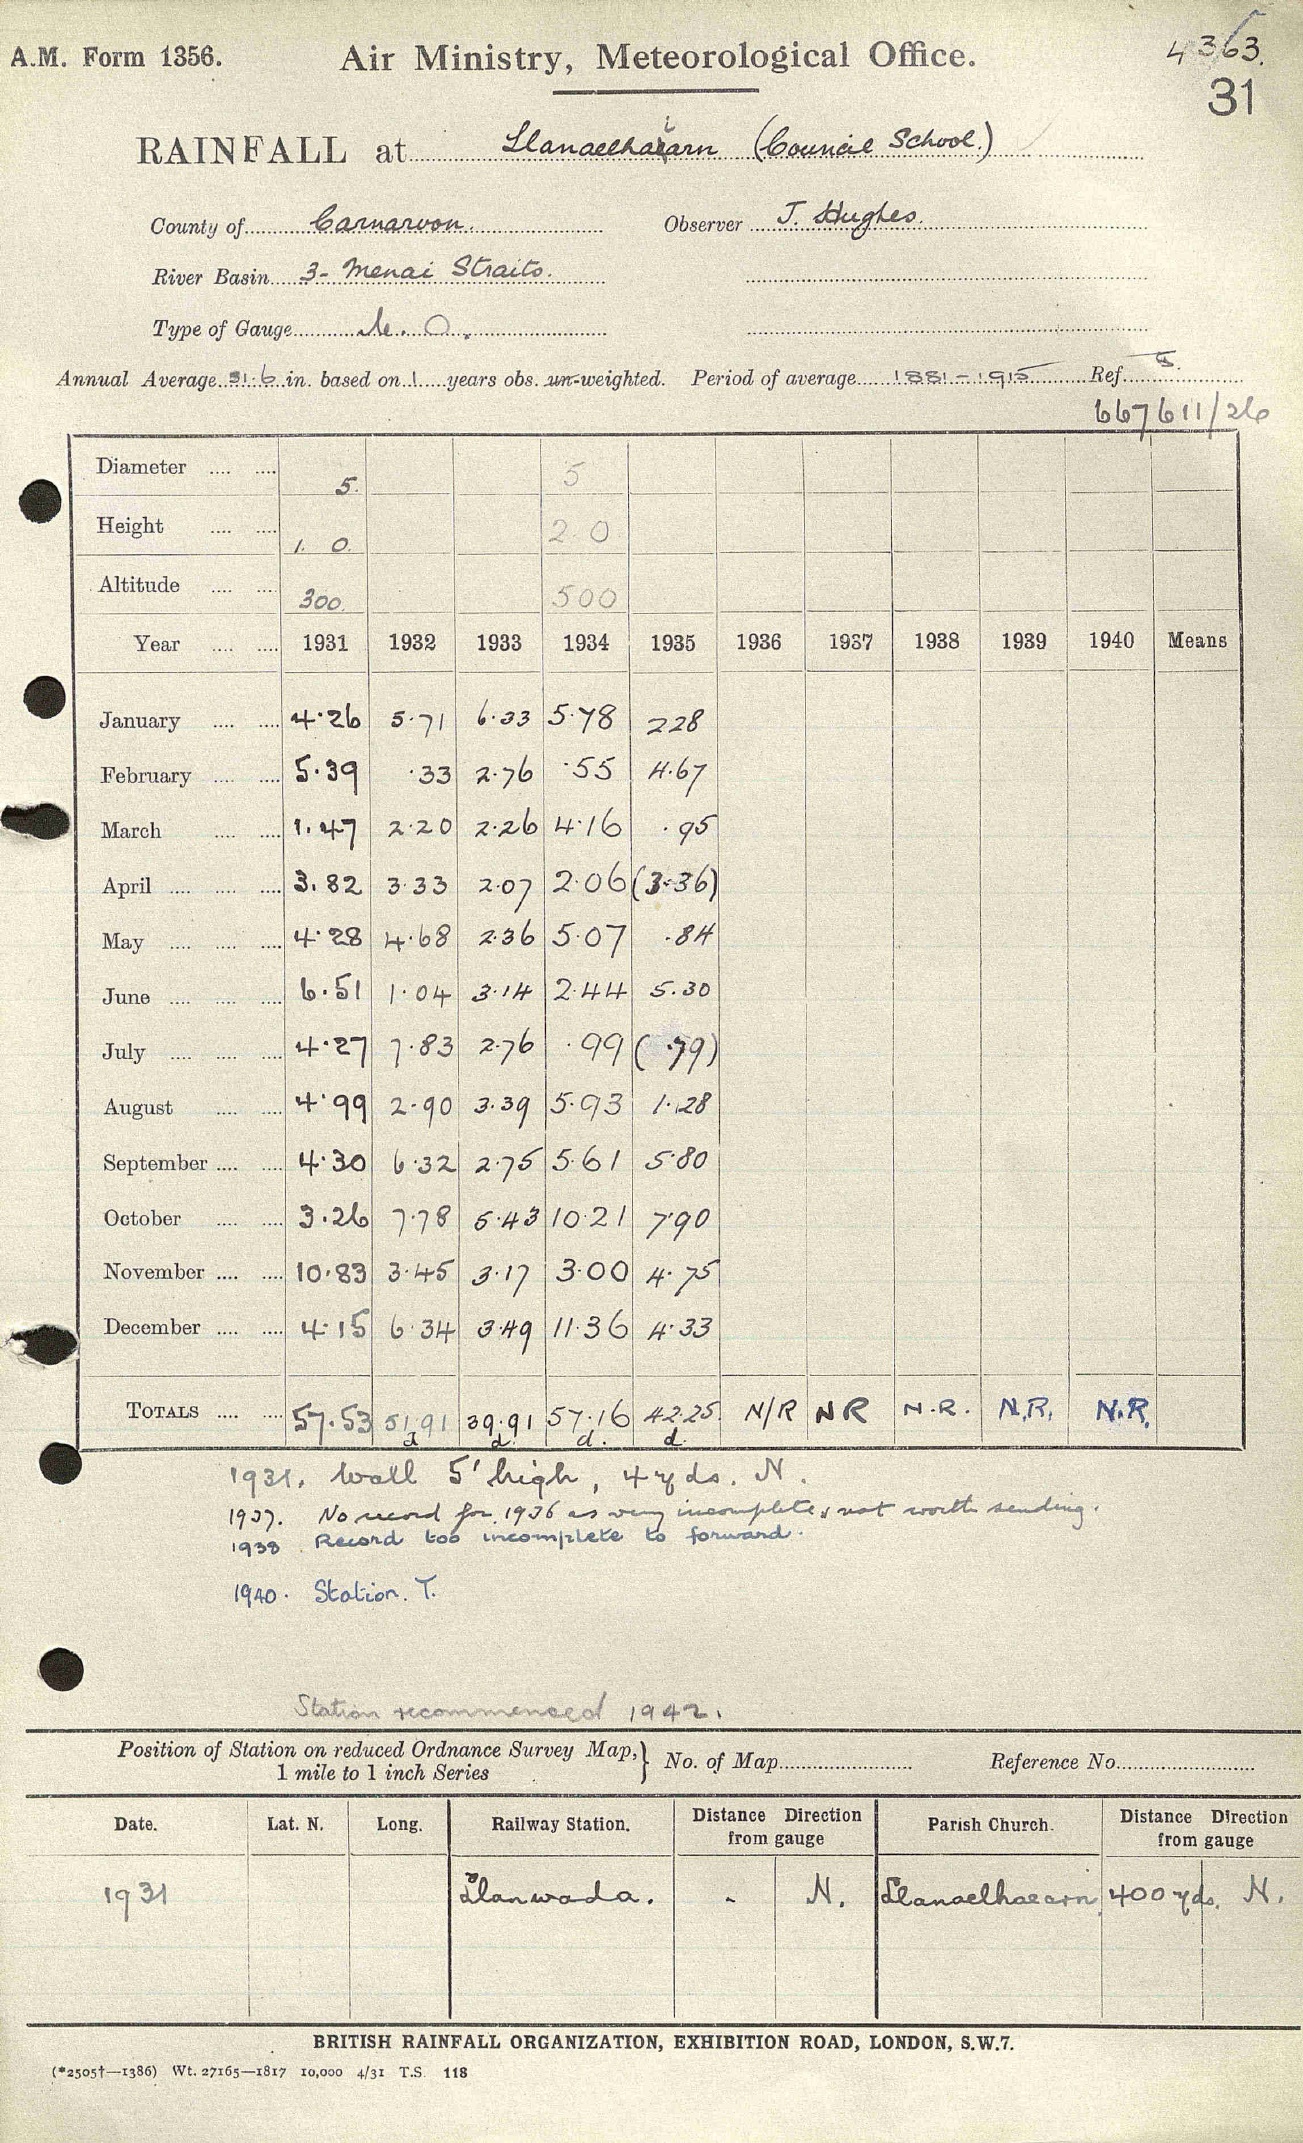 A.M. Form 1356. Air Ministry, Meteorological Office. 4363.
31
RAINFALL at Llanaelhaiarn (Council School.)
County of Carnarvon. Observer J. Hughes.
River Basin 3- Menai Straits.
Type of Gauge M. O.
Annual Average 51.6 in. based on 1 years obs. un-weighted. Period of average 1881-1915 Ref. 5.
667611/26
Diameter 5. 5
Height 1. 0. 2 0
Altitude 300. 500
Year 1931 1932 1933 1934 1935 1936 1937 1938 1939 1940 Means
January 4.26 5.71 6.33 5.78 2 28
February 5.39 .33 2.76 .55 4.67
March 1.47 2.20 2.26 4.16 .95
April 3.82 3.33 2.07 2.06 (3.36)
May 4.28 4.68 2.36 5.07 .84
June 6.51 1.04 3.14 2.44 5.30
July 4.27 7.83 2.76 .99 (.79)
August 4.99 2.90 3.39 5.93 1.28
September 4.30 6.32 2.75 5.61 5.80
October 3.26 7.78 5.43 10.21 7.90
November 10.83 3.45 3.17 3.00 4.75
December 4.15 6.34 3.49 11.36 4.33
TOTALS 57.53 51.91 39.91 57.16 42.25 N/R NR N.R. N.R. N.R.
d d. d. d.
1931. Wall 5' high, 4 yds. N.
1937. No record for 1936 as very incomplete & not worth sending.
1938 Record too incomplete to forward.
1940. Station T.
Station recommenced 1942.
Position of Station on reduced Ordnance Survey Map, } No. of Map Reference No.
1 mile to 1 inch Series
Date. Lat. N. Long. Railway Station. Distance Direction from gauge Parish Church. Distance Direction from gauge
1931 Llanwada. - N. Llanaelhaearn 400 yds. N.
BRITISH RAINFALL ORGANIZATION, EXHIBITION ROAD, LONDON, S.W.7.
(*2505†—1386) Wt. 27165—1817 10,000 4/31 T.S. 118